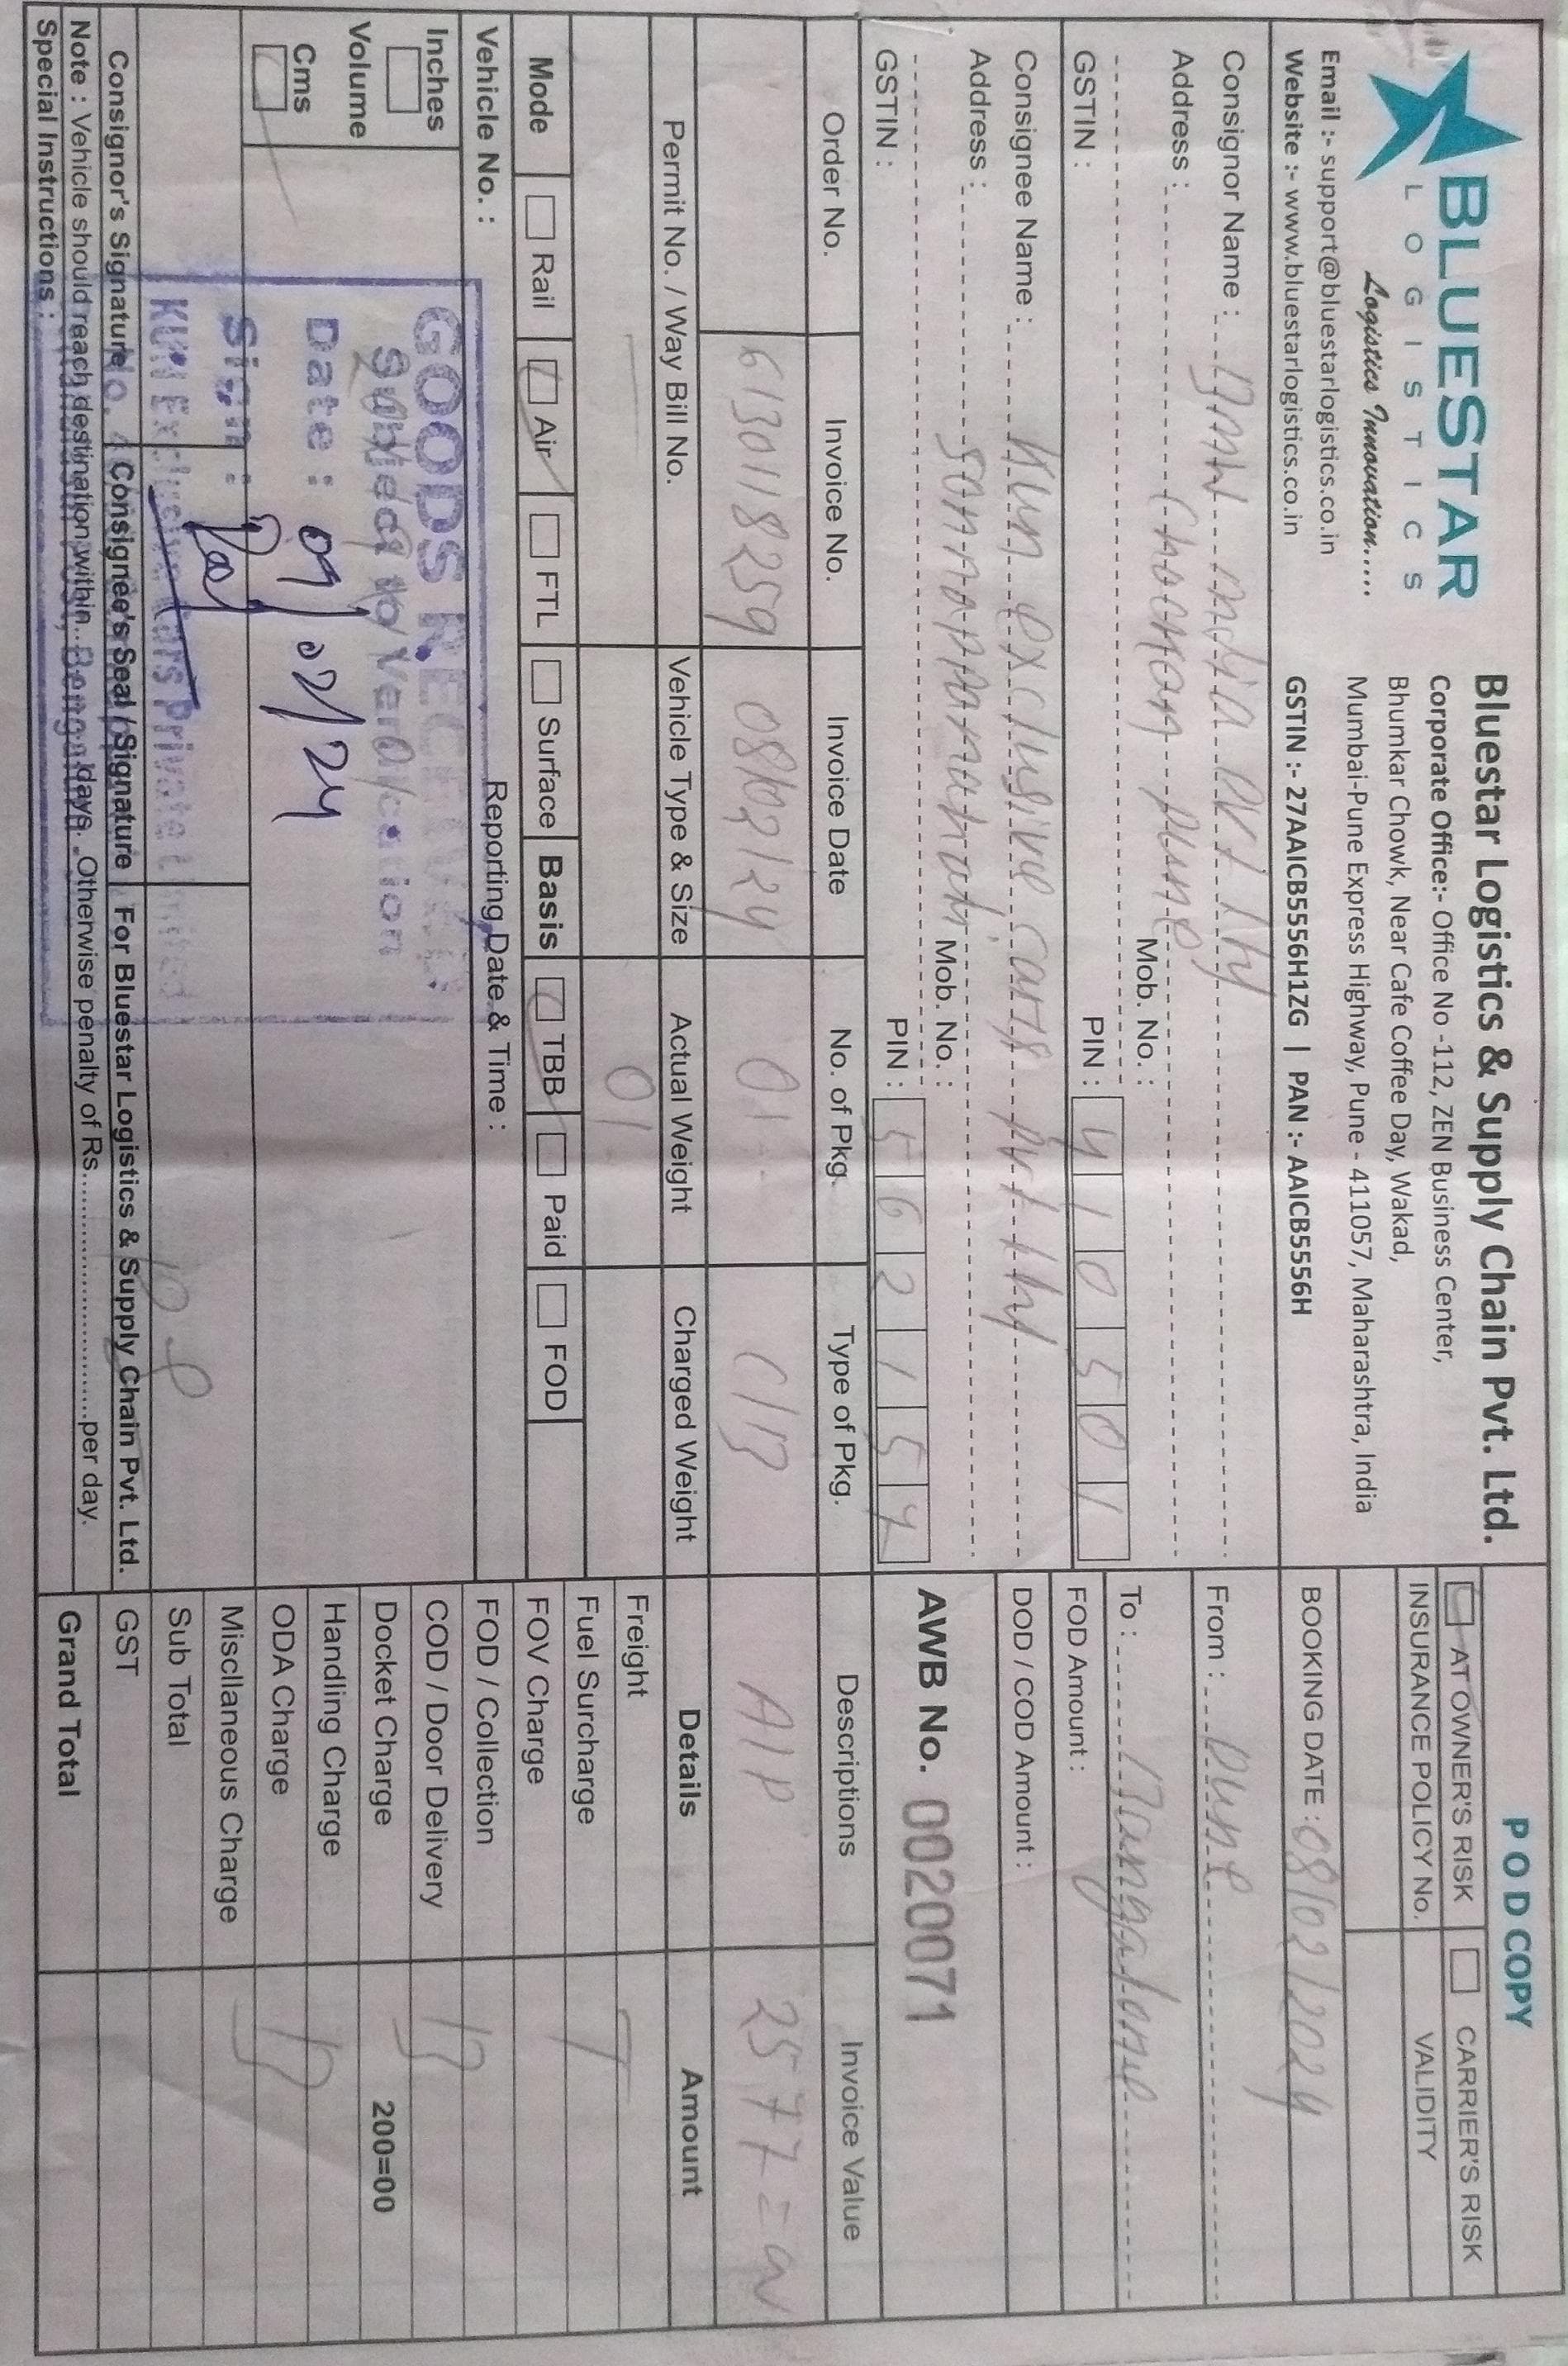 BLUESTAR
LOGISTICS
Logistics Innovation.....
Email :- support@bluestarlogistics.co.in
Website :- www.bluestarlogistics.co.in
Bluestar Logistics & Supply Chain Pvt. Ltd.
Corporate Office:- Office No -112, ZEN Business Center,
Bhumkar Chowk, Near Cafe Coffee Day, Wakad,
Mumbai-Pune Express Highway, Pune - 411057, Maharashtra, India
GSTIN :- 27AAICB5556H1ZG | PAN :- AAICB5556H
POD COPY
AT OWNER'S RISK CARRIER'S RISK
INSURANCE POLICY No. VALIDITY
BOOKING DATE : 08/02/2024
Consignor Name : BMW India Pvt Ltd
Address : Chackan Pune
Mob. No. :
GSTIN : PIN : 410501
From : Pune
To : Bangalore
FOD Amount :
DOD / COD Amount :
Consignee Name : Kun exclusive cars Pvt Ltd
Address :
Mob. No. :
GSTIN : PIN : 562157
AWB No. 0020071
Order No. Invoice No. Invoice Date No. of Pkg. Type of Pkg. Descriptions Invoice Value
6130118259 08/02/24 01 C/B A/P 2577=
Permit No. / Way Bill No. Vehicle Type & Size Actual Weight Charged Weight Details Amount
01
Mode Rail Air FTL Surface Basis TBB Paid FOD
Vehicle No. : Reporting Date & Time :
Inches
Volume
Cms
GOODS RECEIVED
Subject to Verification
Date : 09/02/24
Sign :
KUN Exclusive Cars Private Limited
Freight
Fuel Surcharge
T
FOV Charge
FOD / Collection
COD / Door Delivery
B
Docket Charge 200=00
Handling Charge
ODA Charge
B
Miscllaneous Charge
Sub Total
GST
Grand Total
Consignor's Signature Consignee's Seal / Signature For Bluestar Logistics & Supply Chain Pvt. Ltd.
Note : Vehicle should reach destination within..............days. Otherwise penalty of Rs............................per day.
Special Instructions :